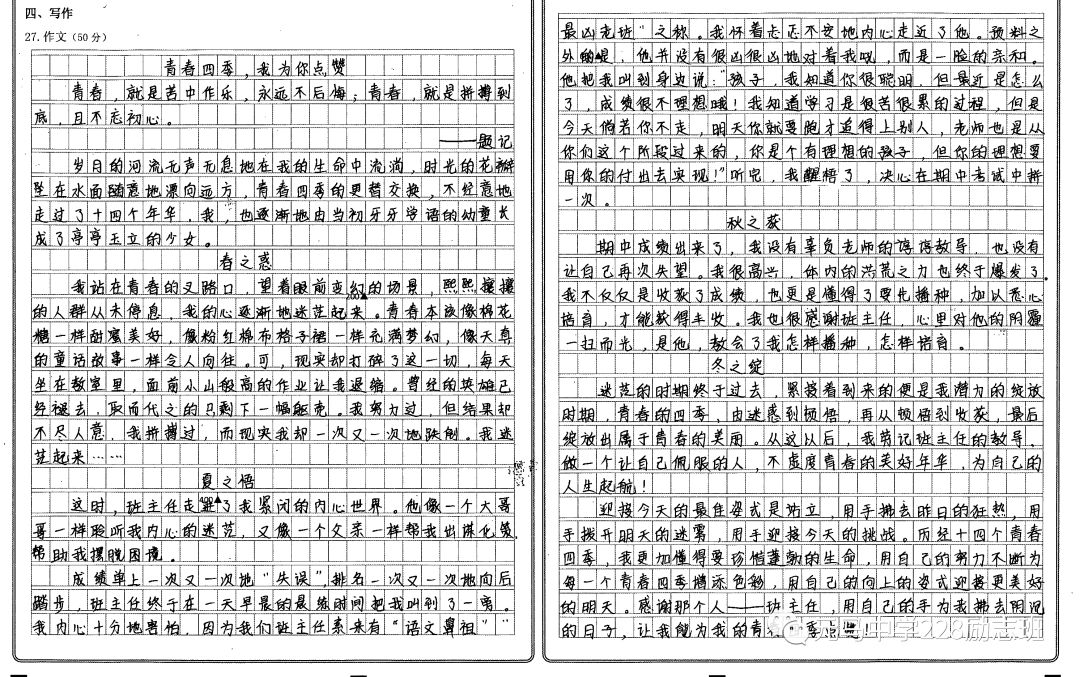 四、写作
27.作文（50分）
青春四季，我为你点赞
青春，就是苦中作乐，永远不后悔；青春，就是拼搏到
底，且不忘初心。
——题记
岁月的河流无声无息地在我的生命中流淌，时光的花瓣
坠在水面随意地漂向远方，青春四季的更替交换，不经意地
走过了十四个年华，我，也逐渐地由当初牙牙学语的幼童长
成了亭亭玉立的少女。
春之惑
我站在青春的叉路口，望着眼前变幻的场景，熙熙攘攘
的人群从未停息，我的心逐渐地迷茫起来。青春本该像棉花
糖一样甜蜜美好，像粉红棉布格子裙一样充满梦幻，像天真
的童话故事一样令人向往。可，现实却打碎了这一切，每天
坐在教室里，面前小山般高的作业让我退缩。曾经的英雄已
经褪去，取而代之的只剩下一幅躯壳。我努力过，但结果却
不尽人意，我拼搏过，而现实我却一次又一次地跌倒。我迷
茫起来……
夏之悟
这时，班主任走进了我紧闭的内心世界。他像一个大哥
哥一样聆听我内心的迷茫，又像一个父亲一样帮我出谋化策
帮助我摆脱困境。
成绩单上一次又一次地“失误”，排名一次又一次地向后
踏步，班主任终于在一天早晨的最终时间把我叫到了一旁。
我内心十分地害怕，因为我们班主任素来有“语文鼻祖”“
最凶老班”之称。我怀着忐忑不安地内心走近了他。预料之
外的是，他并没有很凶很凶地对着我吼，而是一脸的亲和。
他把我叫到身边说：“孩子，我知道你很聪明，但最近是怎么
了，成绩很不理想哦！我知道学习是很苦很累的过程，但是
今天倘若你不走，明天你就要跑才追得上别人，老师也是从
你们这个阶段过来的，你是个有理想的孩子，但你的理想要
用你的付出去实现！”听完，我醒悟了，决心在期中考试中拼
一次。
秋之获
期中成绩出来了，我没有辜负老师的谆谆教导，也没有
让自己再次失望。我很高兴，体内的洪荒之力也终于爆发了。
我不仅仅是收获了成绩，也更是懂得了要先播种，加以悉心
培育，才能获得丰收。我也很感谢班主任，心里对他的阴霾
一扫而光，是他，教会了我怎样播种，怎样培育。
冬之绽
迷茫的时期终于过去，紧接着到来的便是我潜力的绽放
时期，青春的四季，由迷惑到顿悟，再从顿悟到收获，最后
绽放出属于青春的美丽。从这以后，我劳记班主任的教导，
做一个让自己佩服的人，不虚度青春的美好年华，为自己的
人生起航！
迎接今天的最佳姿式是站立，用手拂去昨日的狂热，用
手拨开明天的迷雾，用手迎接今天的挑战。历经十四个青春
四季，我更加懂得要珍惜蓬勃的生命，用自己的努力不断为
每一个青春四季增添色彩，用自己的向上的姿式迎接更美好
的明天。感谢那个人——班主任，用自己的手为我拂去阴沉
的日子，让我能为我的青春四季点赞！